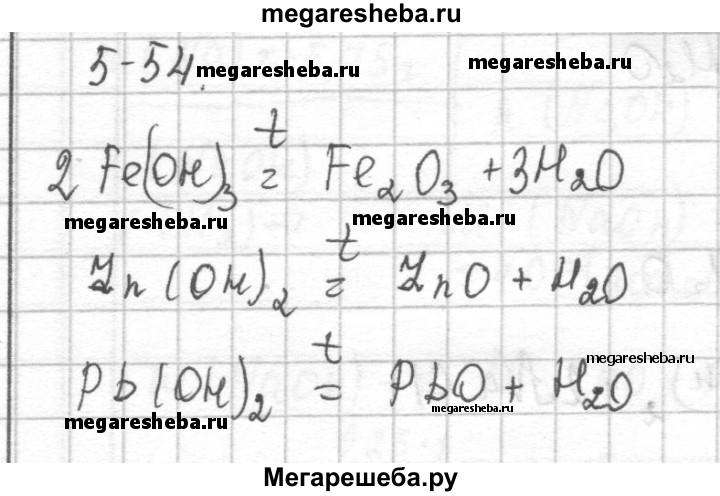 megaresheba.ru
5-54. megaresheba.ru megaresheba.ru
t
2 Fe(OH)3 = Fe2O3 + 3H2O
megaresheba.ru megaresheba.ru
t
Zn(OH)2 = ZnO + H2O
t
megaresheba.ru
Pb(OH)2 = PbO + H2O
megaresheba.ru megaresheba.ru
Мегарешеба.ру